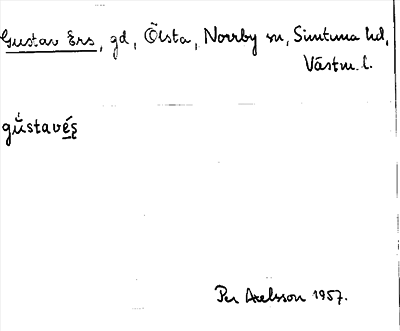 Gustav Ers, gd, Ölsta, Norrby sn, Simtuna hd,
Västm. l.
gu̇stavéș
Per Axelsson 1957.